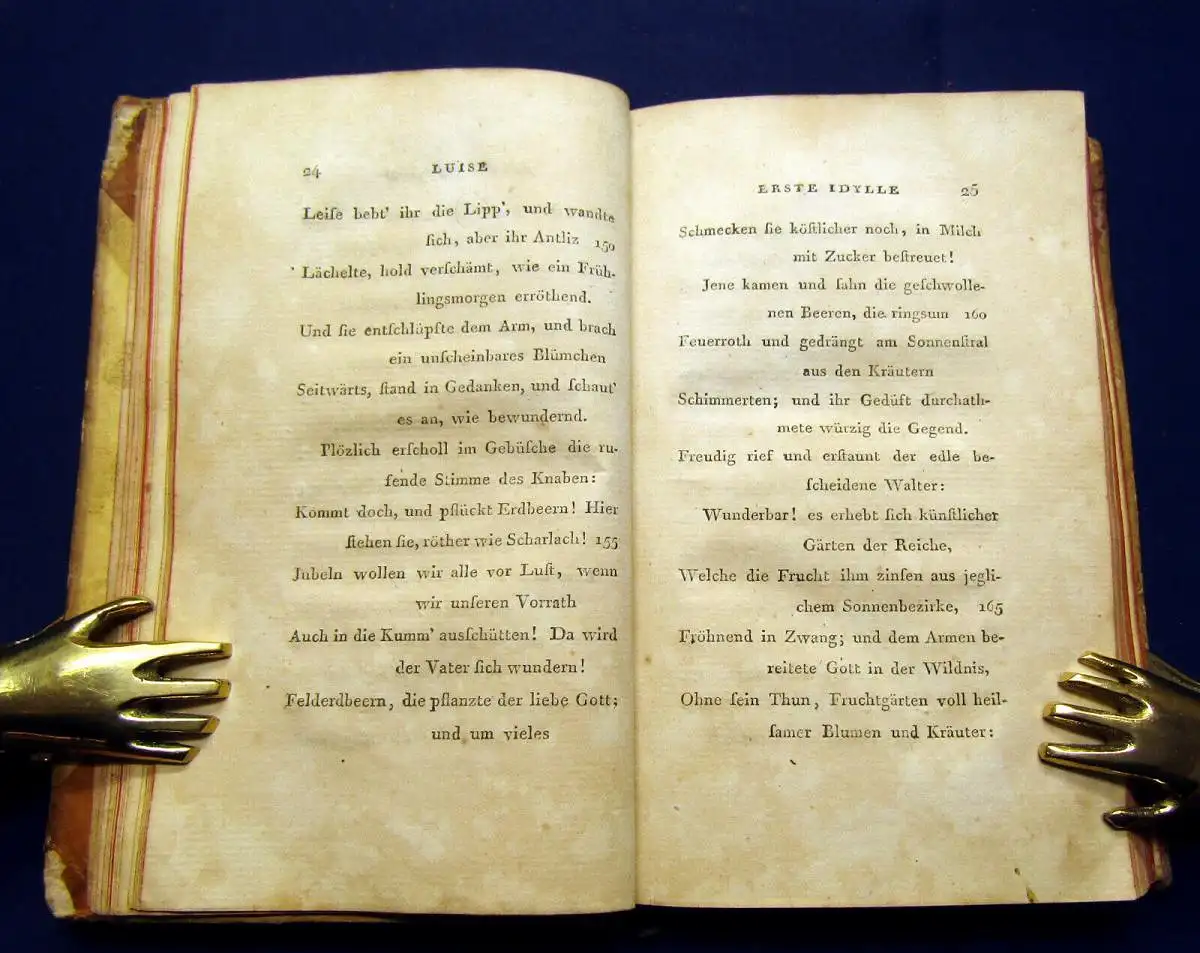 24 LUISE
Leiſe bebt' ihr die Lipp', und wandte
ſich, aber ihr Antliz 150
Lächelte, hold verſchämt, wie ein Früh-
lingsmorgen erröthend.
Und ſie entſchlüpfte dem Arm, und brach
ein unſcheinbares Blümchen
Seitwärts, ſtand in Gedanken, und ſchaut'
es an, wie bewundernd.
Plözlich erſcholl im Gebüſche die ru-
fende Stimme des Knaben:
Kommt doch, und pflückt Erdbeern! Hier
ſtehen ſie, röther wie Scharlach! 155
Jubeln wollen wir alle vor Luſt, wenn
wir unſeren Vorrath
Auch in die Kumm' ausſchütten! Da wird
der Vater ſich wundern!
Felderdbeern, die pflanzte der liebe Gott;
und um vieles
ERSTE IDYLLE 25
Schmecken ſie köſtlicher noch, in Milch
mit Zucker beſtreuet!
Jene kamen und ſahn die geſchwolle-
nen Beeren, die ringsum 160
Feuerroth und gedrängt am Sonnenſtral
aus den Kräutern
Schimmerten; und ihr Gedüft durchath-
mete würzig die Gegend.
Freudig rief und erſtaunt der edle be-
ſcheidene Walter:
Wunderbar! es erhebt ſich künſtlicher
Gärten der Reiche,
Welche die Frucht ihm zinſen aus jegli-
chem Sonnenbezirke, 165
Fröhnend in Zwang; und dem Armen be-
reitete Gott in der Wildnis,
Ohne ſein Thun, Fruchtgärten voll heil-
ſamer Blumen und Kräuter: